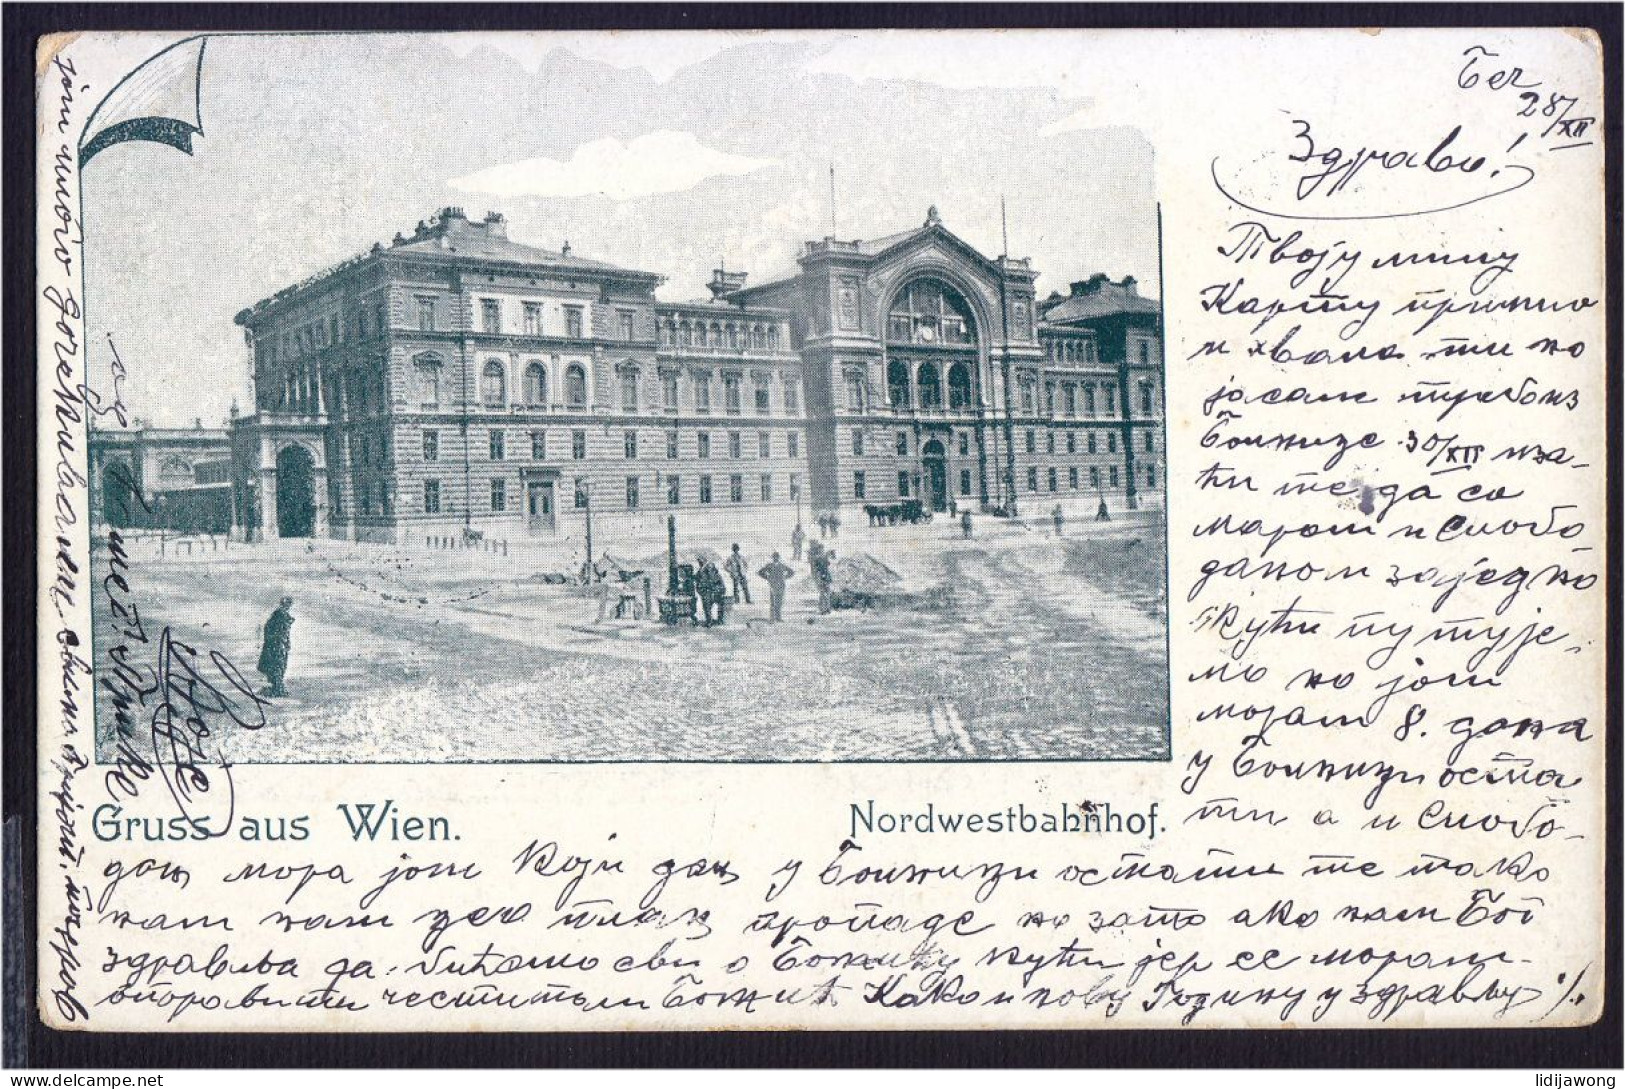 Беч
28/XII
Здраво!
Твоју милу
Карту примио
и хвала ти но
ја сам требо из
Болнице 30/XII иза-
ћи те да са
маром и Слобо
даном заједно
кући путује-
мо но још
морам 8. дана
у Болници оста
ти а и Слобо-
дан мора још који дан у Болници остати те тако
нам наш цео план пропаде но зато ако нам Бог
здравља да. бићемо сви о Божићу кући јер се морам
опоравити честитам Божић Како и нову Годину у здрављу ./.
још много
свима
од
Gruss aus Wien.
Nordwestbahnhof.
lidijawong